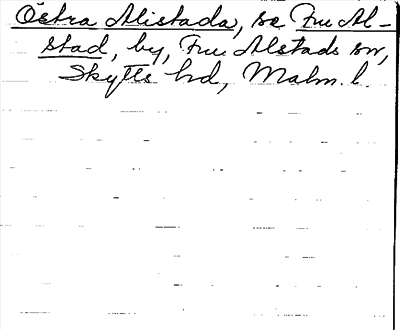 Östra Alistada, se Fru Al-
stad, by, Fru Alstads sn,
Skytts hd, Malm. l.